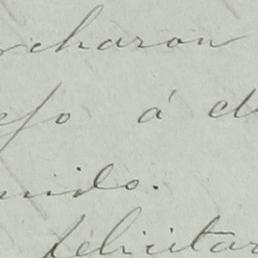 rcharon
efo á d
nido.
felicitar